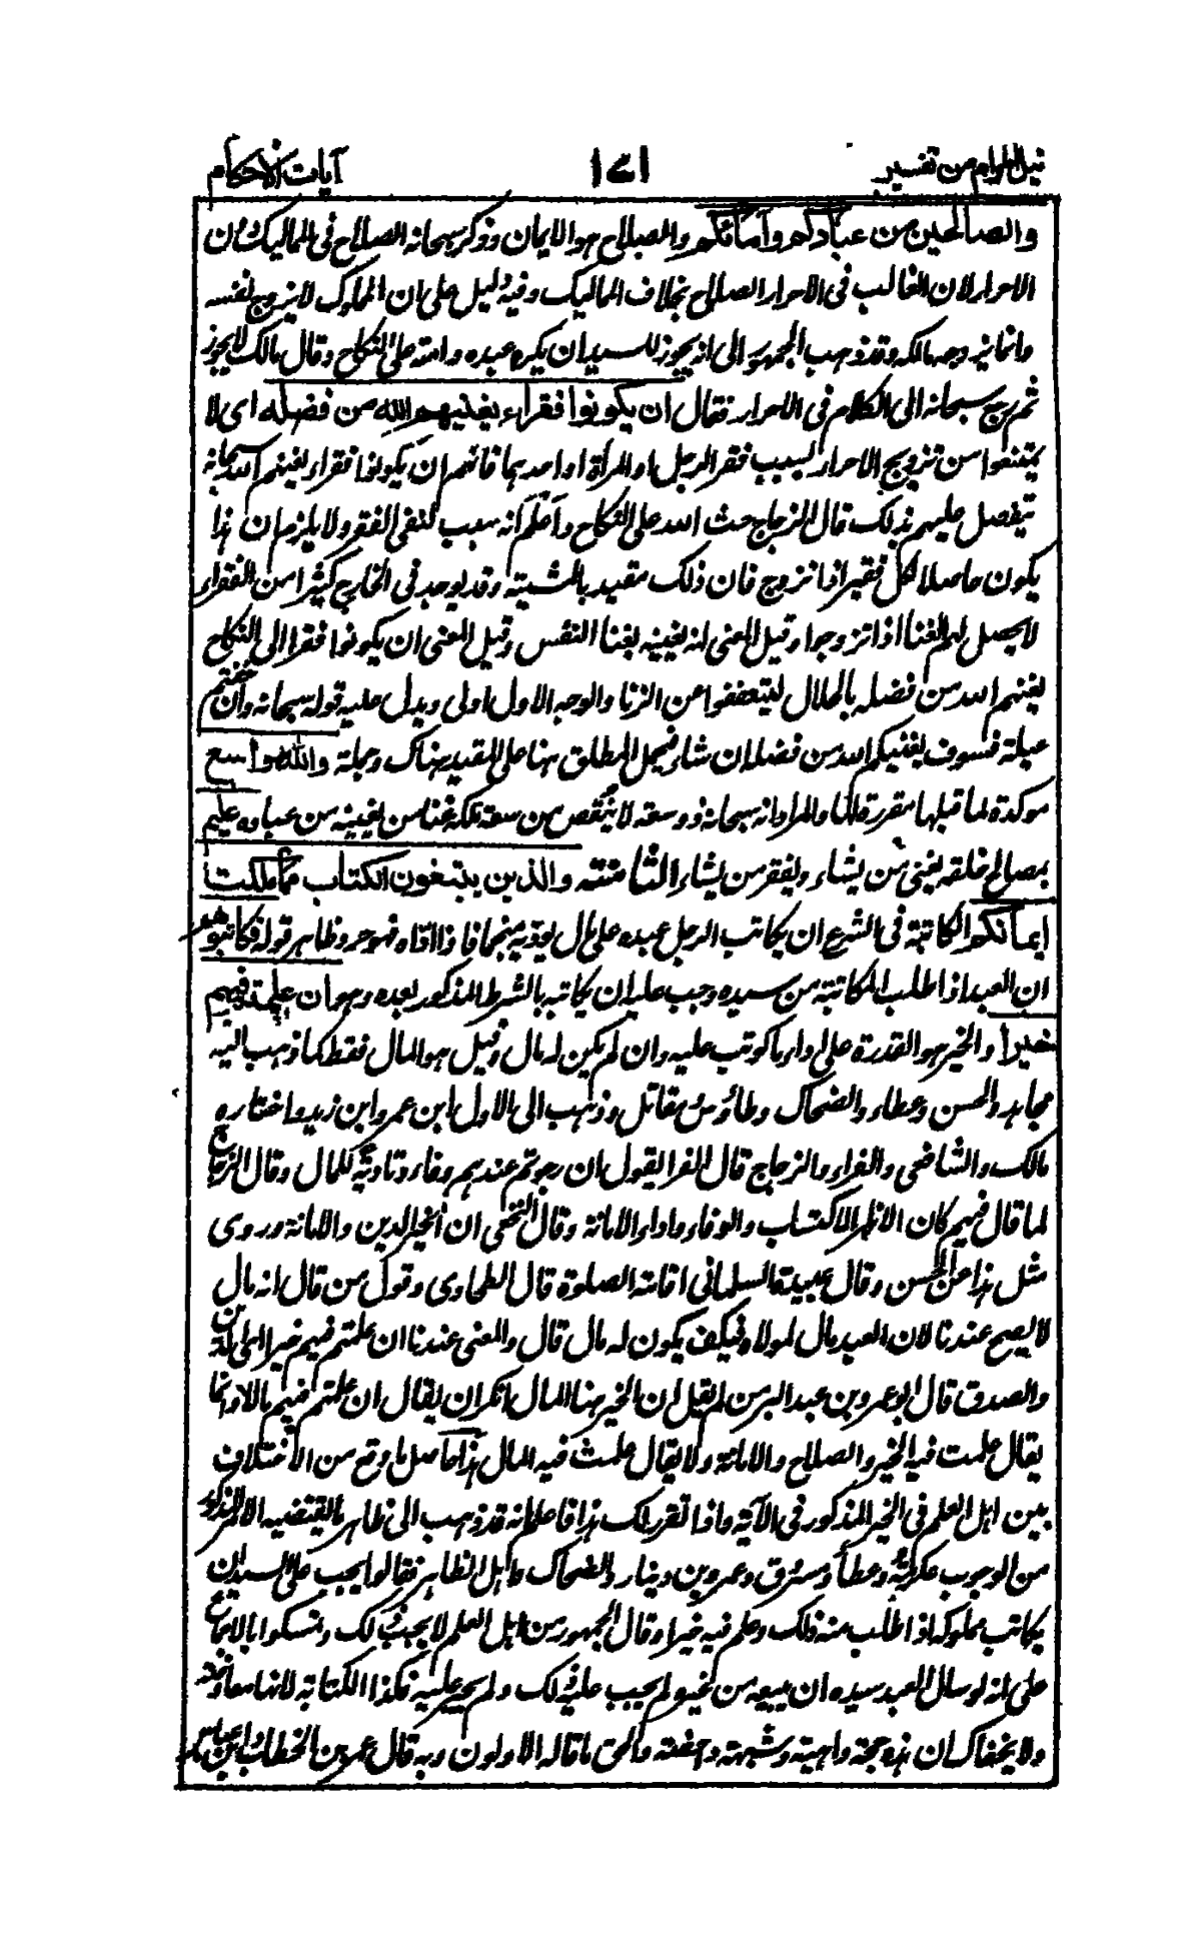 نيل المرام من تفسير ١٧١ آيات الاحكام
والصالحين من عبادكم وامائكم والصلاح هو الايمان وذكر سبحانه الصلاح فى المماليك دون
الاحرار لان الغالب فى الاحرار الصلاح بخلاف المماليك وفيه دليل على ان المملوك لا يزوج نفسه
وانما يزوجه مالكه وقد ذهب الجمهور الى انه يجوز للسيد ان يكره عبده وامته على النكاح وقال مالك لا يجوز
ثم رجع سبحانه الى الكلام فى الاحرار فقال ان يكونوا فقراء يغنيهم الله من فضله اى لا
يمتنعوا من تزويج الاحرار بسبب فقر الرجل او المرأة او احدهما فانهم ان يكونوا فقراء يغنهم الله سبحانه
يتفضل عليهم بذلك قال الزجاج حث الله على النكاح واعلم انه سبب لنفى الفقر ولا يلزم ان هذا
يكون حاصلا لكل فقير اذا تزوج فان ذلك مقيد بالمشية وقد يوجد فى الخارج كثيرا من الفقراء
لا يحصل لهم الغنا اذا تزوجوا وقيل المعنى انه يغنيه بغنا النفس وقيل المعنى ان يكونوا فقرا الى النكاح
يغنهم الله من فضله بالحلال ليتعففوا عن الزنا والوجه الاول اولى ويدل عليه قوله سبحانه وان خفتم
عيلة فسوف يغنيكم الله من فضله ان شاء فيحمل المطلق هنا على المقيد هناك وجملة والله واسع
موكدة لما قبلها مقررة لها والمراد انه سبحانه ذو سعة لا ينقص من سعة ملكه غنا من يغنيه من عباده عليم
بمصالح خلقه يغنى من يشاء ويفقر من يشاء الثامنة والذين يبتغون الكتاب مما ملكت
ايمانكم المكاتبة فى الشرع ان يكاتب الرجل عبده على مال يوديه منجما فاذا اداه فهو حر وظاهر قوله فكاتبوهم
ان العبد اذا طلب المكاتبة من سيده وجب عليه ان يكاتبه بالشرط المذكور بعده وهو ان علمتم فيهم
خيرا والخير هو القدرة على اداء ما كوتب عليه وان لم يكن له مال وقيل هو المال فقط كما ذهب اليه
مجاهد والحسن وعطاء والضحاك وطاؤس ومقاتل وذهب الى الاول ابن عمر وابن زيد واختاره
مالك والشافعى والفراء والزجاج قال الفرا يقول ان رجوتم عندهم وفاء وتادية للمال وقال الزجاج
لما قال فيهم كان الاظهر الاكتساب والوفاء واداء الامانة وقال النخعى ان الخير الدين والامانة وروى
مثل هذا عن الحسن وقال عبيدة السلمانى اقامة الصلوة قال الطحاوى وقول من قال انه مال
لا يصح عندنا لان العبد مال لمولاه فكيف يكون له مال قال والمعنى عندنا ان علمتم فيهم خيرا الدين
والصدق قال ابو عمر وبن عبد البر من لم يقل ان الخير هنا المال انكر ان يقال ان علمتم فيهم مالا وانما
يقال علمت فيه الخير والصلاح والامانة ولا يقال علمت فيه المال هذا حاصل ما وقع من الاختلاف
بين اهل العلم فى الخير المذكور فى الآية واذا تقرر لك هذا فاعلم انه قد ذهب الى ظاهر ما يقتضيه الامر المذكور
من الوجوب عكرمة وعطاء ومسروق وعمرو بن دينار والضحاك واهل الظاهر فقالوا يجب على السيد ان
يكاتب مملوكه اذا طلب منه ذلك وعلم فيه خيرا وقال الجمهور من اهل العلم لا يجب ذلك وتمسكوا بالاجماع
على انه لو سال العبد سيده ان يبيعه من غيره لم يجب عليه ذلك ولم يجبر عليه فكذا الكتابة لانها معاوضة
ولا يخفاك ان هذه حجة واهية وشبهة داحضة والحق ما قاله الاولون وبه قال عمر بن الخطاب وابن عباس